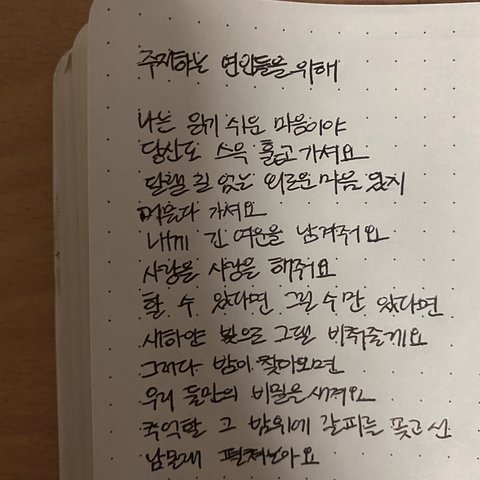 주저하는 연인들을 위해
나는 읽기 쉬운 마음이야
당신도 스윽 훑고 가셔요
달랠 길 없는 외로운 마음 있지
머물다 가셔요
내게 긴 여운을 남겨줘요
사랑을 사랑을 해줘요
할 수 있다면 그럴 수만 있다면
새하얀 빛으로 그댈 비춰줄게요
그러다 밤이 찾아오면
우리 둘만의 비밀을 새겨요
추억할 그 밤위에 갈피를 꽂고 선
남몰래 펼쳐보아요